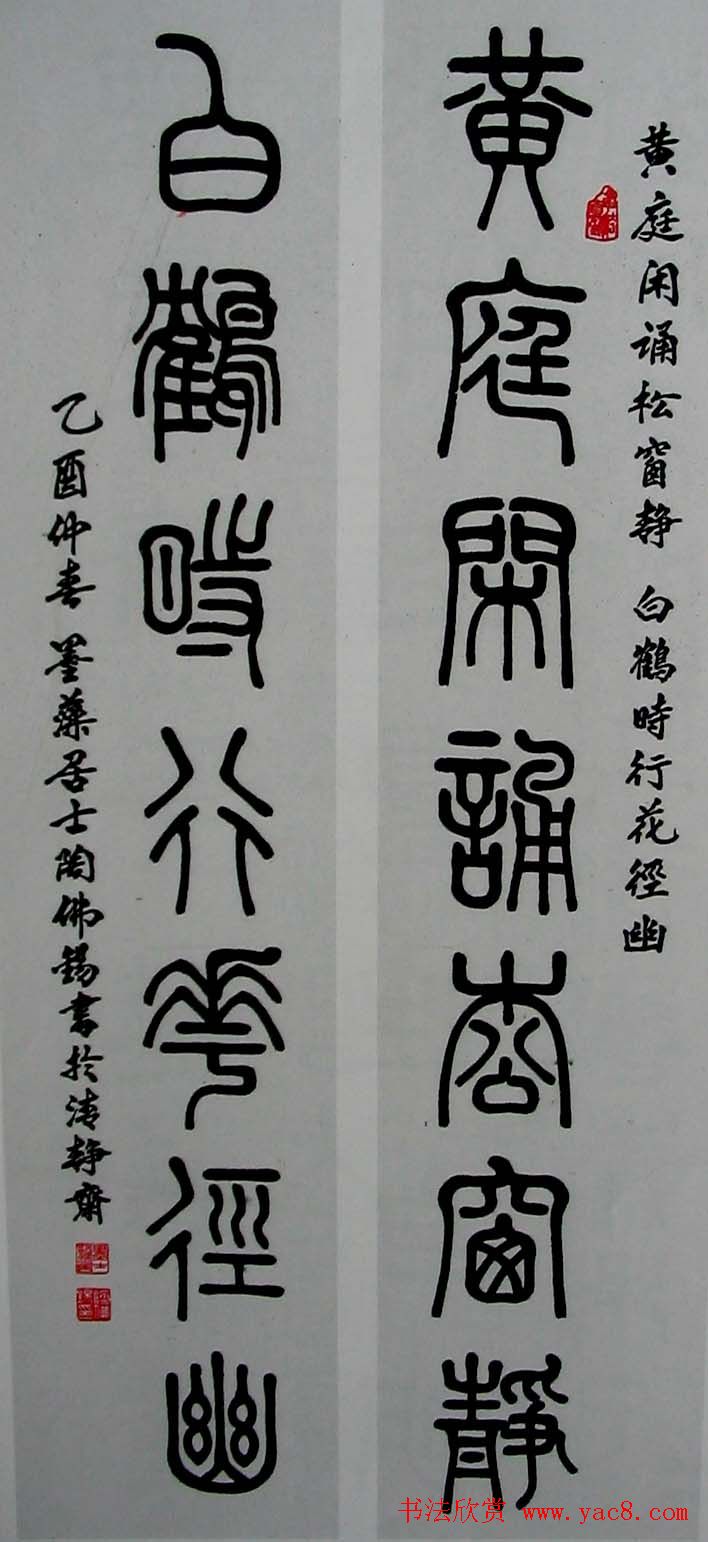 黄庭闲诵松窗静 白鶴時行花徑幽
黄庭閑誦松窗靜
白鶴時行花徑幽
乙酉仲春 墨藥居士陶佛錫書於清静齋
书法欣赏 www.yac8.com